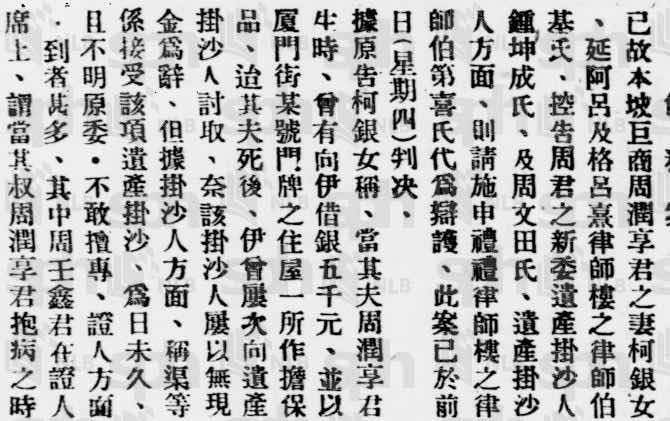 已故本坡巨商周潤享君之妻柯銀女
、延阿呂及格呂熹律師樓之律師伯
基氏、控告周君之新委遺產掛沙人
鍾坤成氏、及周文田氏、遺產掛沙
人方面、則請施申禮禮律師樓之律
師伯第喜氏代爲辯護、此案已於前
日(星期四)判决、
據原告柯銀女稱、當其夫周潤享君
生時、曾有向伊借銀五千元、並以
厦門街某號門牌之住屋一所作擔保
品、迨其夫死後、伊曾屢次向遺產
掛沙人討取、奈該掛沙人屢以無現
金爲辭、但據掛沙人方面、稱渠等
係接受該項遺產掛沙、爲日未久、
且不明原委・不敢擅專、證人方面
・到者甚多、其中周壬鑫君在證人
席上、謂當其叔周潤享君抱病之時